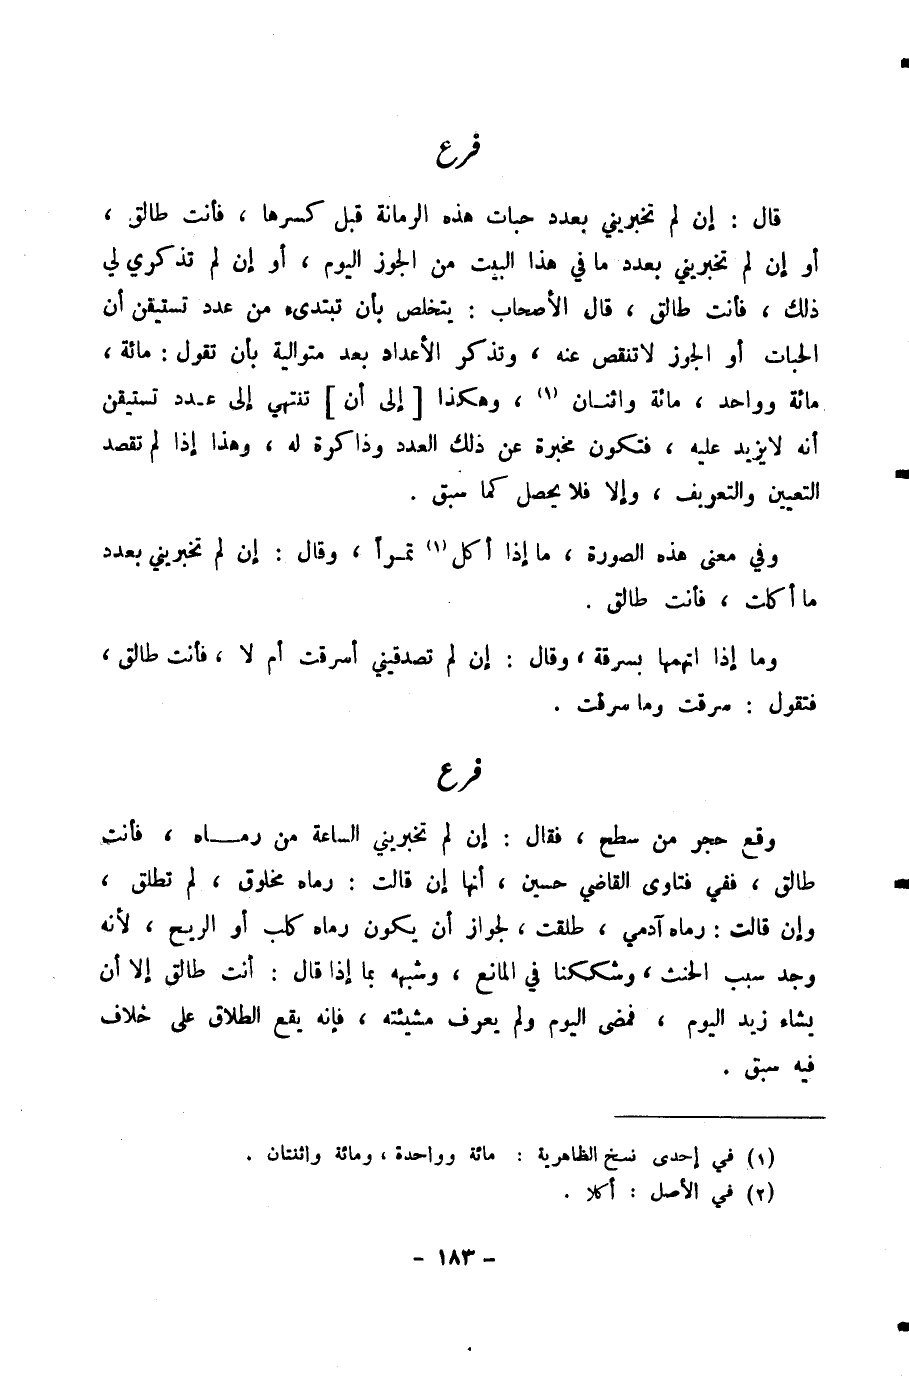 فرع
قال : إن لم تخبريني بعدد حبات هذه الرمانة قبل كسرها ، فأنت طالق ،
أو إن لم تخبريني بعدد ما في هذا البيت من الجوز اليوم ، أو إن لم تذكري لي
ذلك ، فأنت طالق ، قال الأصحاب : يتخلص بأن تبتدىء من عدد تستيقن أن
الحبات أو الجوز لاتنقص عنه ، وتذكر الأعداد بعد متوالية بأن تقول : مائة ،
مائة وواحد ، مائة واثنـان (١) ، وهكذا [ إلى أن ] تنتهي إلى عـدد تستيقن
أنه لايزيد عليه ، فتكون مخبرة عن ذلك العدد وذاكرة له ، وهذا إذا لم تقصد
التعيين والتعريف ، وإلا فلا يحصل كما سبق .
وفي معنى هذه الصورة ، ما إذا أكل (١) تمـراً ، وقال : إن لم تخبريني بعدد
ما أكلت ، فأنت طالق .
وما إذا اتهمها بسرقة ، وقال : إن لم تصدقيني أسرقت أم لا ، فأنت طالق ،
فتقول : سرقت وما سرقت .
فرع
وقع حجر من سطح ، فقال : إن لم تخبريني الساعة من رمـــاه ، فأنت
طالق ، ففي فتاوى القاضي حسين ، أنها إن قالت : رماه مخلوق ، لم تطلق ،
وإن قالت : رماه آدمي ، طلقت ، لجواز أن يكون رماه كلب أو الريح ، لأنه
وجد سبب الحنث ، وشككنا في المانع ، وشبهه بما إذا قال : أنت طالق إلا أن
يشاء زيد اليوم ، فمضى اليوم ولم يعرف مشيئته ، فإنه يقع الطلاق على خلاف
فيه سبق .
(١) في إحدى نسخ الظاهرية : مائة وواحدة ، ومائة واثنتان .
(٢) في الأصل : أكلا .
- ١٨٣ -